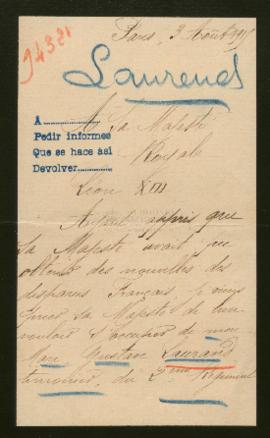 94321
Paris, 3 Aout 1915
Laurend
A
Pedir informes
Que se hace así
Devolver
A Sa Majesté
Royale
Léon XIII
Ayant appris que
Sa Majesté avait pu
obtenir des nouvelles des
disparus Français je viens
prier Sa Majesté de
s'occuper de mon
Mari Gustave Laurand
du 2eme Régiment